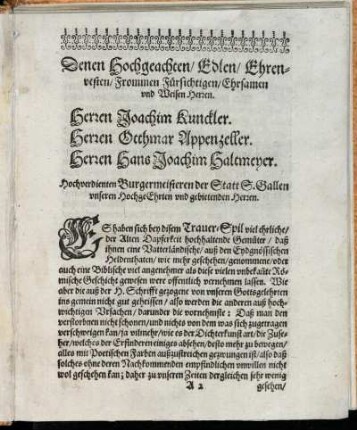 Denen Hochgeachten/ Edlen/ Ehren-
vesten/ Frommen Fürsichtigen/ Ehrsamen
vnd Weisen Herren.
Herren Joachim Kunckler.
Herren Otthmar Appenzeller.
Herren Hans Joachim Haltmeyer.
Hochverdienten Burgermeisteren der Statt S. Gallen
vnseren HochgeEhrten vnd gebietenden Herren.
ES haben sich bey disem Trauer-Spil viel ehrliche/
der Alten Dapferkeit hochhaltende Gemüter/ daß
ihnen eine Vatterländische/ auß den Eydgnößischen
Heldenthaten/ wie mehr geschehen/ genommene/ oder
auch eine Biblische viel angenehmer als diese vielen unbekañte Rö-
mische Geschicht gewesen were offentlich vernehmen lassen. Wir
aber die auß der H. Schrifft gezogene von unseren Gottsgelehrten
ins gemein nicht gut geheissen/ also werden die anderen auß hoch-
wichtigen Ursachen/ darunder die vornehmste: Daß man den
verstorbnen nicht schonen/ und nichts von dem was sich zugetragen
verschweigen kan/ ja vilmehr/ wie es der Dichterkunst art/ die Zuse-
her/ welches der Erfinderen einiges absehen/ desto mehr zu bewegen/
alles mit Poetischen Farben außzustreichen gezwungen ist/ also daß
solches ohne deren Nachkommenden empfindlichen unwillen nicht
wol geschehen kan; daher zu unseren Zeiten dergleichen sehr wenig
A 2 gesehen/